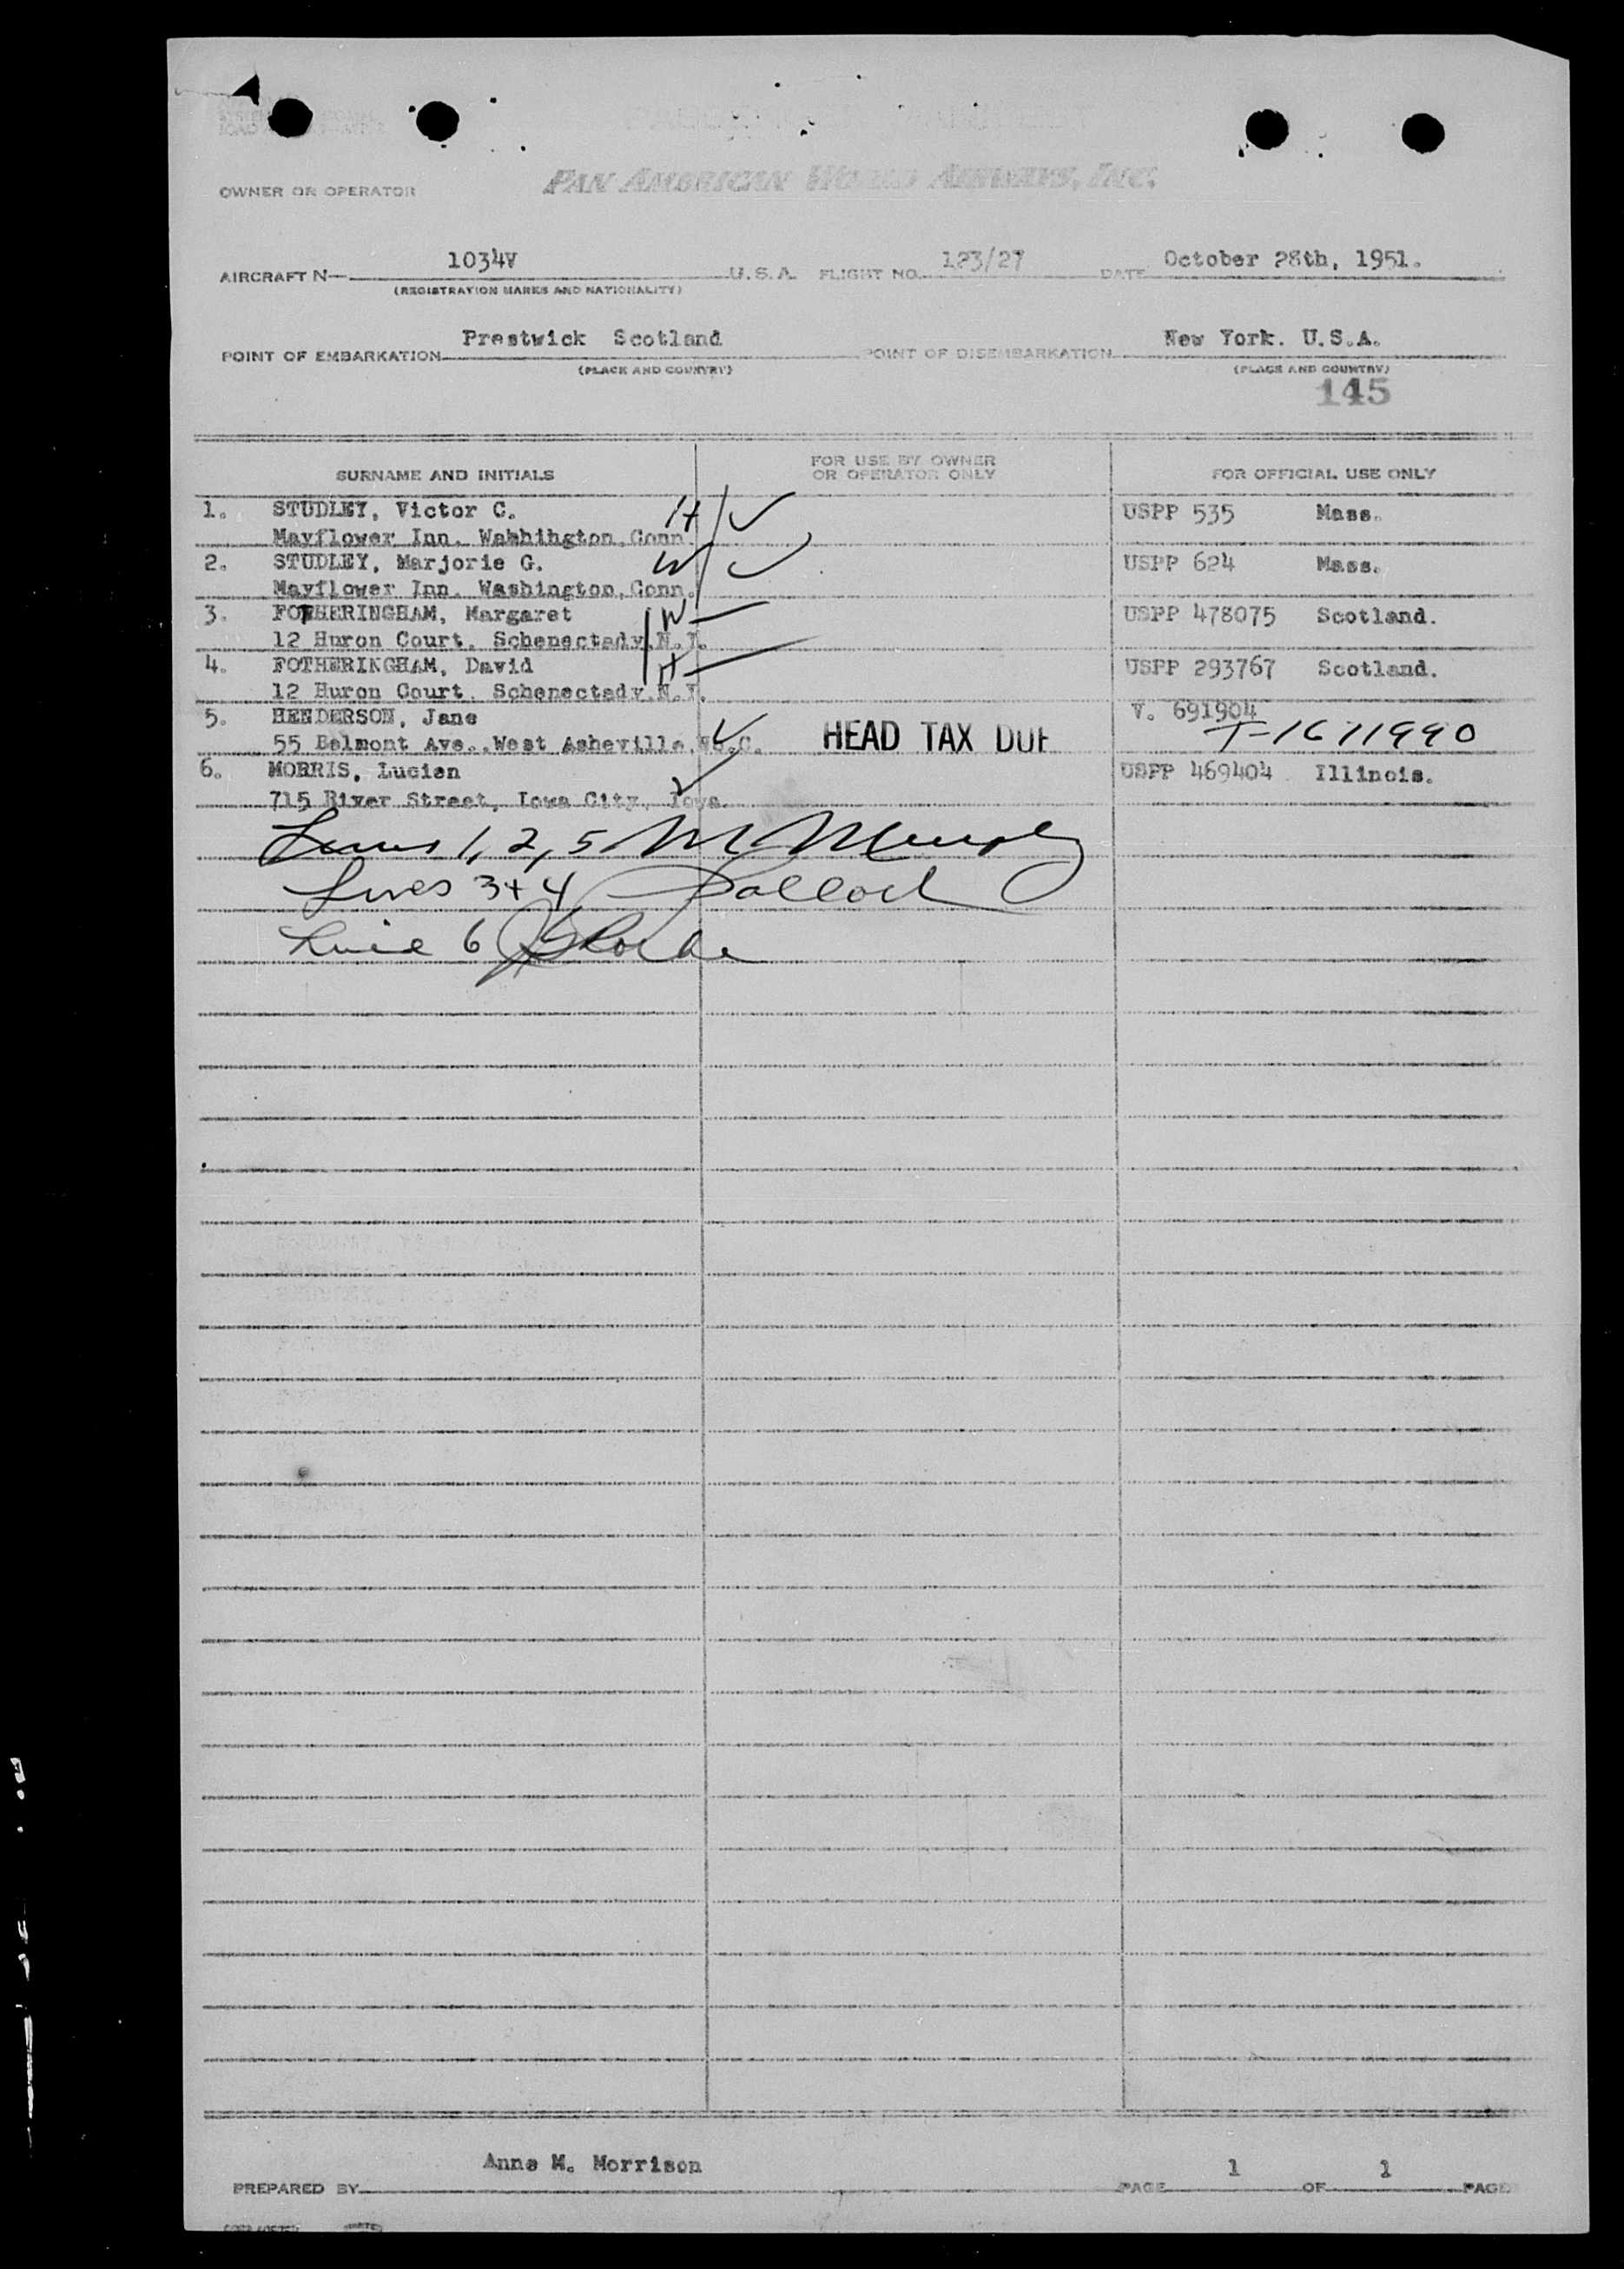 PASSENGER MANIFEST
OWNER OR OPERATOR PAN AMERICAN WORLD AIRWAYS, INC.
AIRCRAFT N— 1034V U.S.A. FLIGHT NO. 123/27 DATE October 28th, 1951.
(REGISTRATION MARKS AND NATIONALITY)
POINT OF EMBARKATION Prestwick Scotland POINT OF DISEMBARKATION New York. U.S.A.
(PLACE AND COUNTRY) (PLACE AND COUNTRY)
145
SURNAME AND INITIALS FOR USE BY OWNER OR OPERATOR ONLY FOR OFFICIAL USE ONLY
1. STUDLEY, Victor C. H ✓ USPP 535 Mass.
Mayflower Inn. Wahhihgton, Conn.
2. STUDLEY, Marjorie G. W ✓ USPP 624 Mass.
Mayflower Inn. Washington, Conn.
3. FOTHERINGHAM, Margaret W — USPP 478075 Scotland.
12 Huron Court, Schenectady, N.Y.
4. FOTHERINGHAM, David H — USPP 293767 Scotland.
12 Huron Court, Schenectady, N.Y.
5. HENDERSON, Jane ✓ V. 691904
55 Belmont Ave., West Asheville, N.C. HEAD TAX DUE T-1611990
6. MORRIS, Lucien ✓ USPP 469404 Illinois.
715 River Street, Iowa City, Iowa.
Lines 1, 2, 5 M Murphy
Lines 3+4 Pollock
Line 6
PREPARED BY Anne M. Morrison PAGE 1 OF 1 PAGE